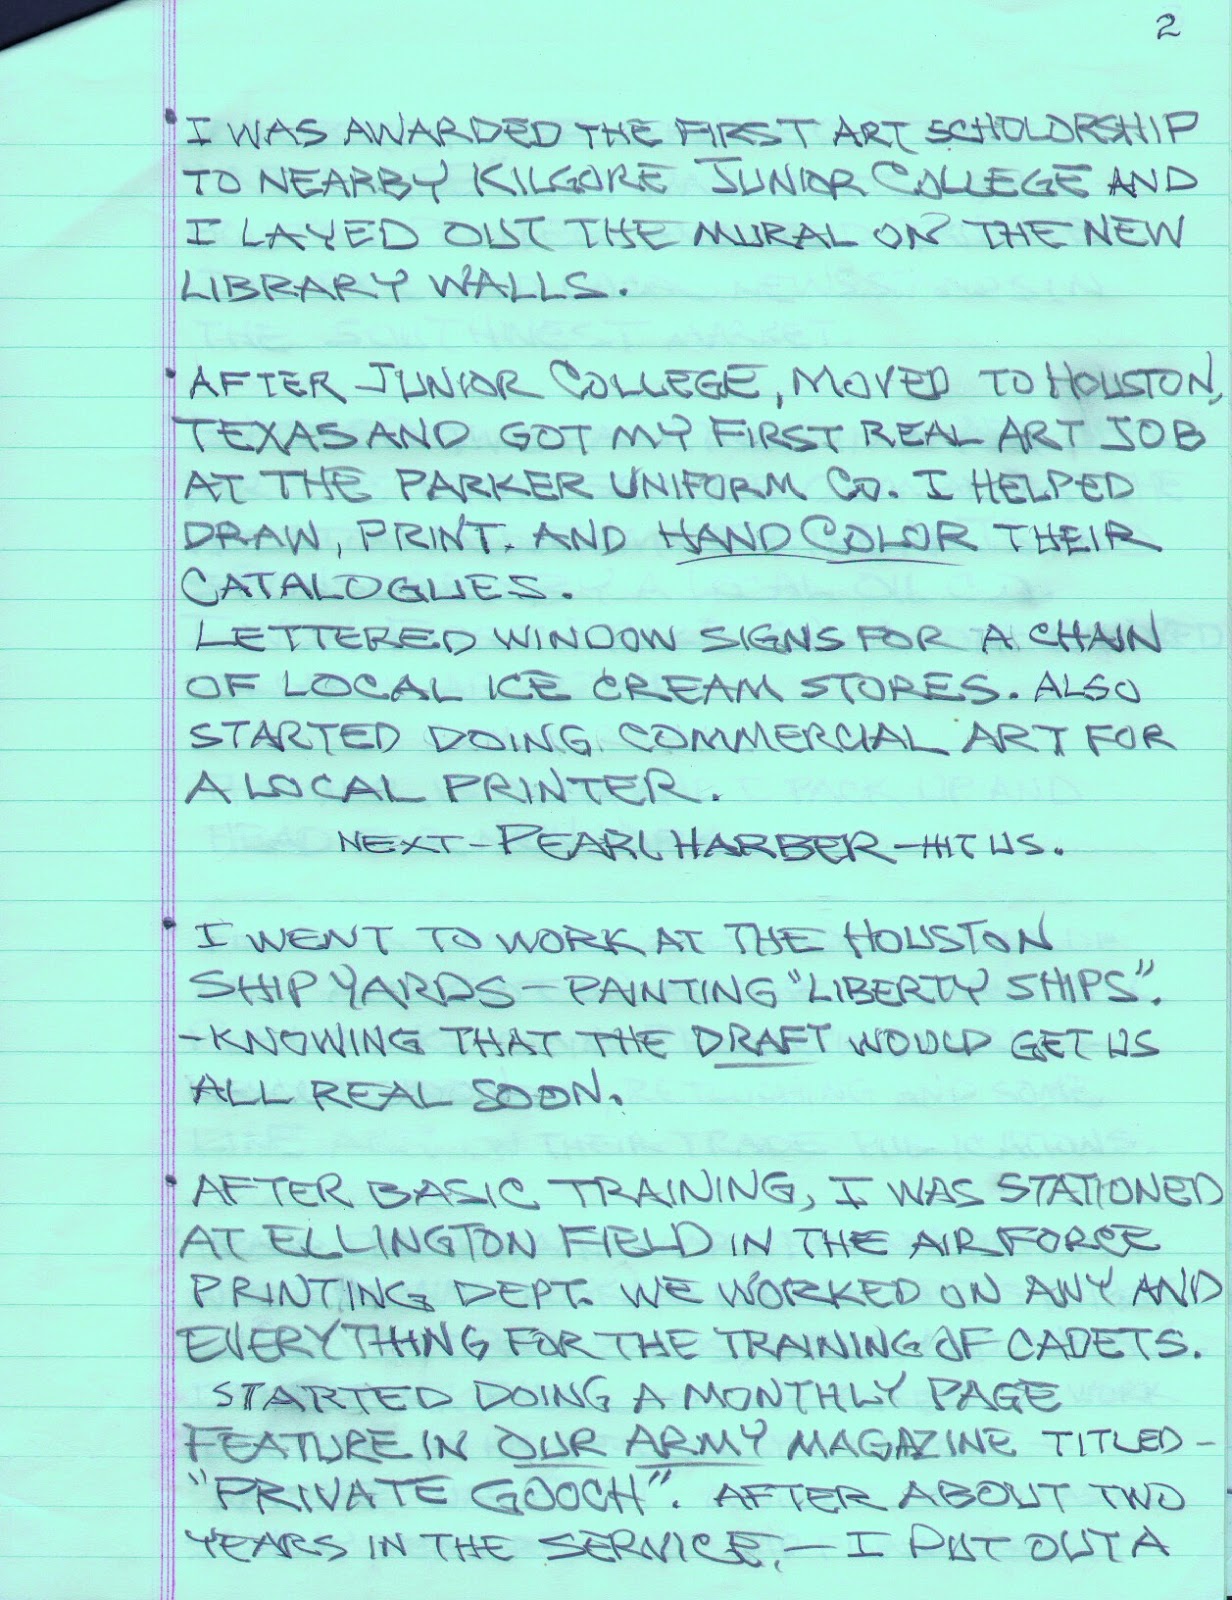 2
• I WAS AWARDED THE FIRST ART SCHOLORSHIP
TO NEARBY KILGORE JUNIOR COLLEGE AND
I LAYED OUT THE MURAL ON THE NEW
LIBRARY WALLS.
• AFTER JUNIOR COLLEGE, MOVED TO HOUSTON,
TEXAS AND GOT MY FIRST REAL ART JOB
AT THE PARKER UNIFORM CO. I HELPED
DRAW, PRINT. AND HAND COLOR THEIR
CATALOGUES.
LETTERED WINDOW SIGNS FOR A CHAIN
OF LOCAL ICE CREAM STORES. ALSO
STARTED DOING COMMERCIAL ART FOR
A LOCAL PRINTER.
NEXT - PEARL HARBER - HIT US.
• I WENT TO WORK AT THE HOUSTON
SHIP YARDS - PAINTING "LIBERTY SHIPS".
- KNOWING THAT THE DRAFT WOULD GET US
ALL REAL SOON.
• AFTER BASIC TRAINING, I WAS STATIONED
AT ELLINGTON FIELD IN THE AIR FORCE
PRINTING DEPT. WE WORKED ON ANY AND
EVERYTHING FOR THE TRAINING OF CADETS.
STARTED DOING A MONTHLY PAGE
FEATURE IN OUR ARMY MAGAZINE TITLED -
"PRIVATE GOOCH". AFTER ABOUT TWO
YEARS IN THE SERVICE, - I PUT OUT A